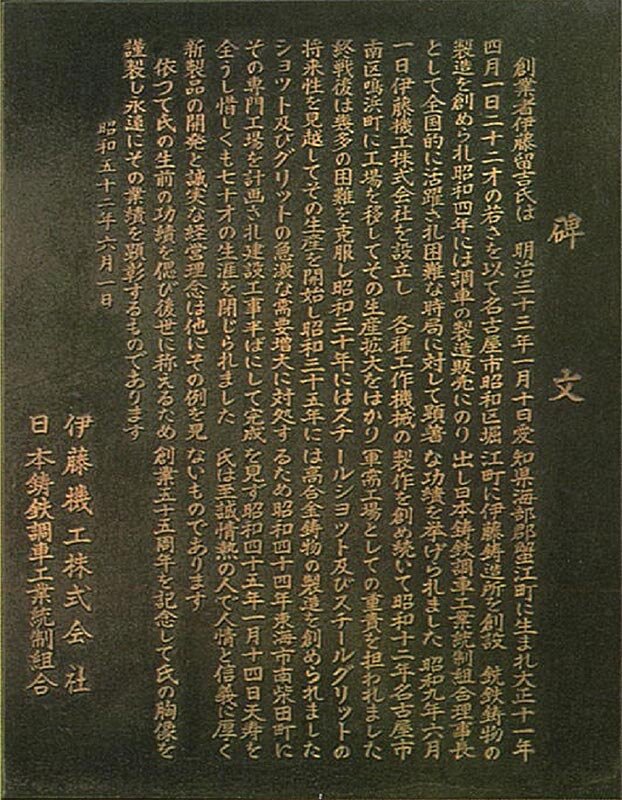 碑文
創業者伊藤留吉氏は 明治三十三年一月十日愛知県海部郡蟹江町に生まれ大正十一年
四月一日二十二才の若さを以て名古屋市昭和区堀江町に伊藤鋳造所を創設 銑鉄鋳物の
製造を創められ昭和四年には調車の製造販売にのり出し日本鋳鉄調車工業統制組合理事長
として全国的に活躍され困難な時局に対して顕著な功績を挙げられました 昭和九年六月
一日伊藤機工株式会社を設立し 各種工作機械の製作を創め続いて昭和十二年名古屋市
南区鳴浜町に工場を移してその生産拡大をはかり軍需工場としての重責を担われました
終戦後は幾多の困難を克服し昭和三十年にはスチールショット及びスチールグリットの
将来性を見越してその生産を開始し昭和三十五年には高合金鋳物の製造を創められました
ショット及びグリットの急激な需要増大に対処するため昭和四十四年東海市南柴田町に
その専門工場を計画され建設工事半ばにして完成を見ず昭和四十五年一月十四日天寿を
全うし惜しくも七十才の生涯を閉じられました 氏は至誠情熱の人で人情と信義に厚く
新製品の開発と誠実な経営理念は他にその例を見ないものであります
依つて氏の生前の功績を偲び後世に称えるため創業五十五周年を記念して氏の胸像を
謹製し永遠にその業績を顕彰するものであります
昭和五十二年六月一日
伊藤機工株式会社
日本鋳鉄調車工業統制組合